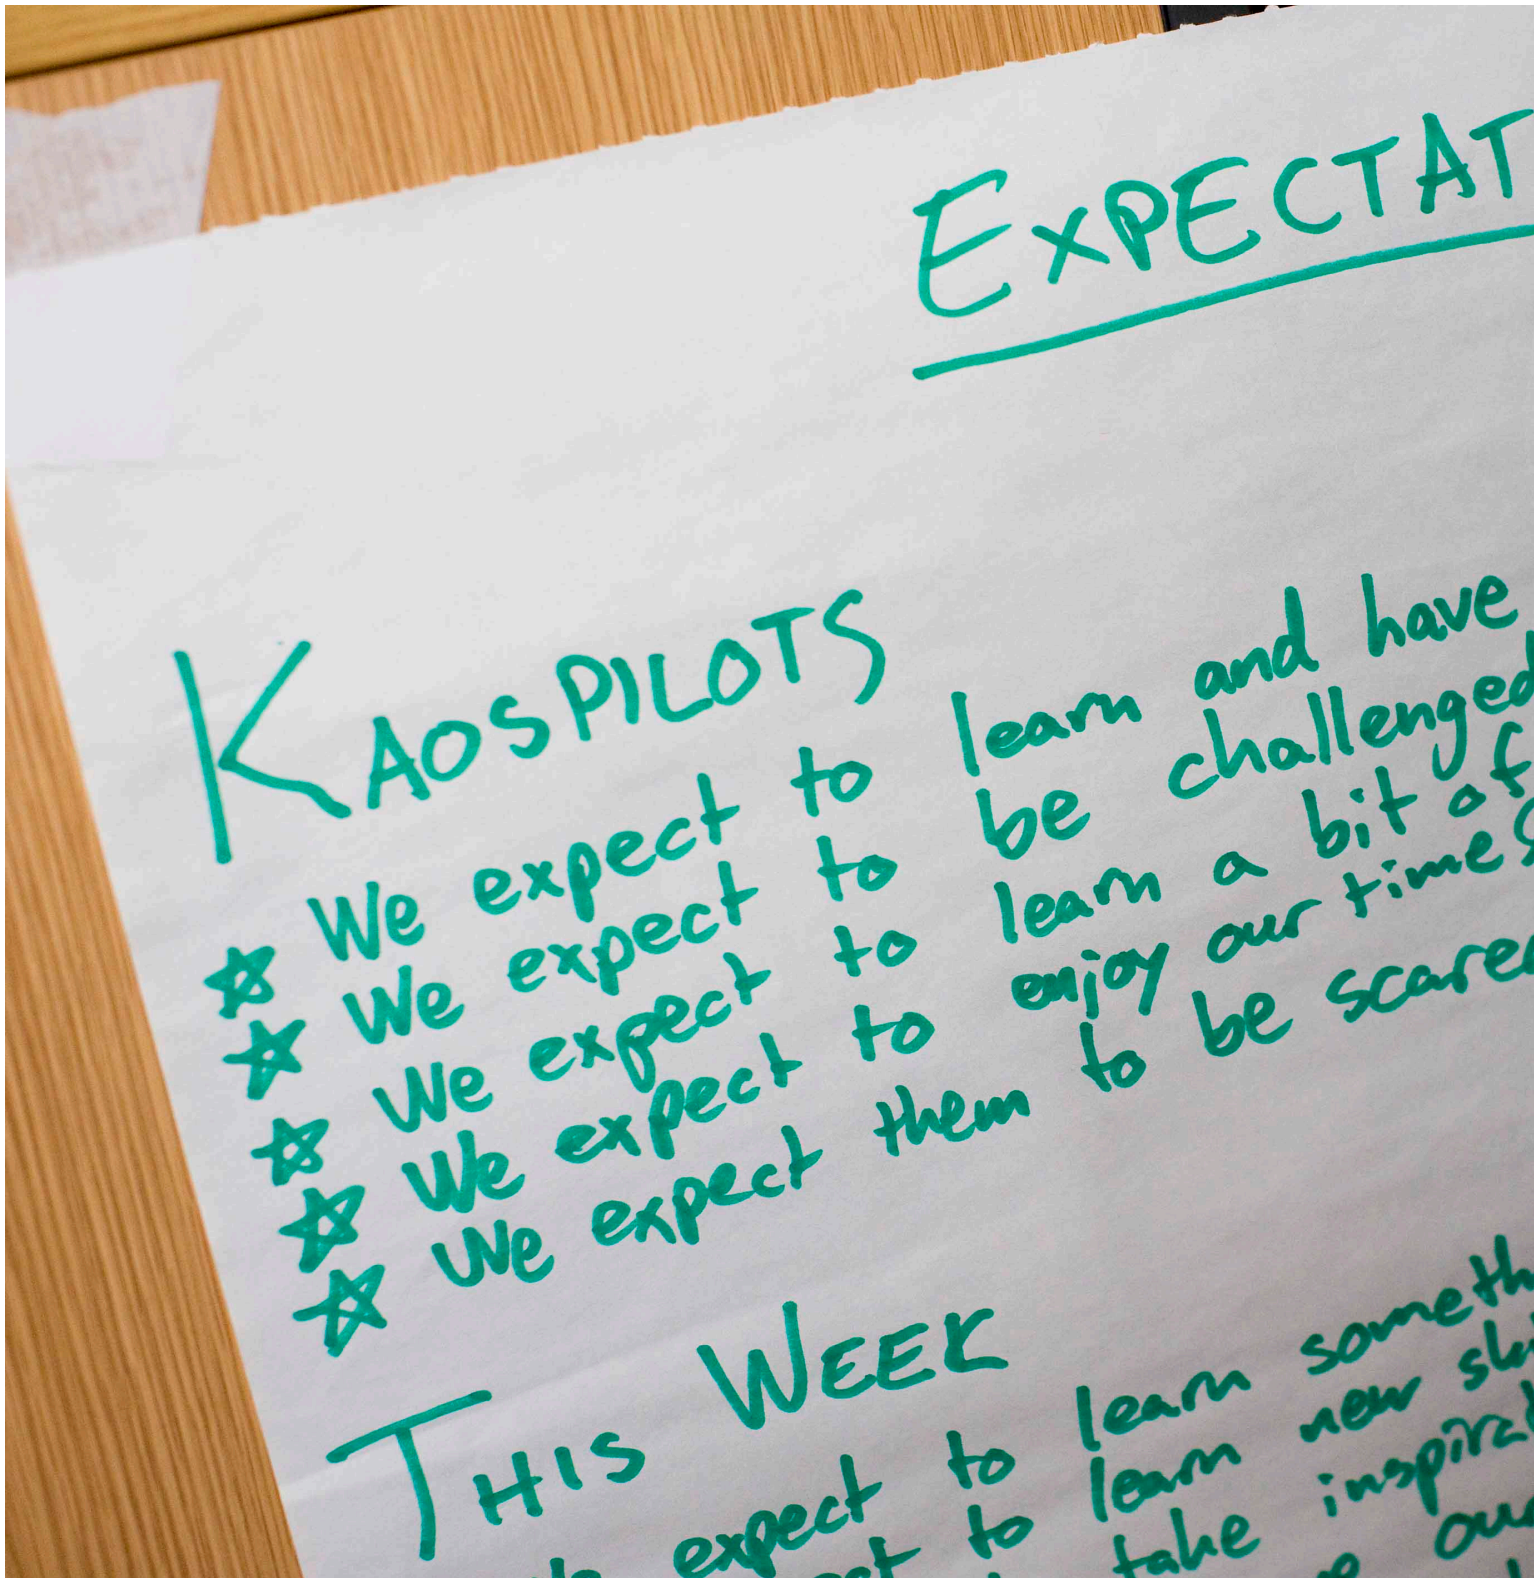 EXPECTAT
KAOSPILOTS
☆ We expect to learn and have
☆ We expect to be challenged
☆ We expect to learn a bit of
☆ We expect to enjoy our time
☆ We expect them to be scared
THIS WEEK
expect to learn someth
to learn new
take inspirat